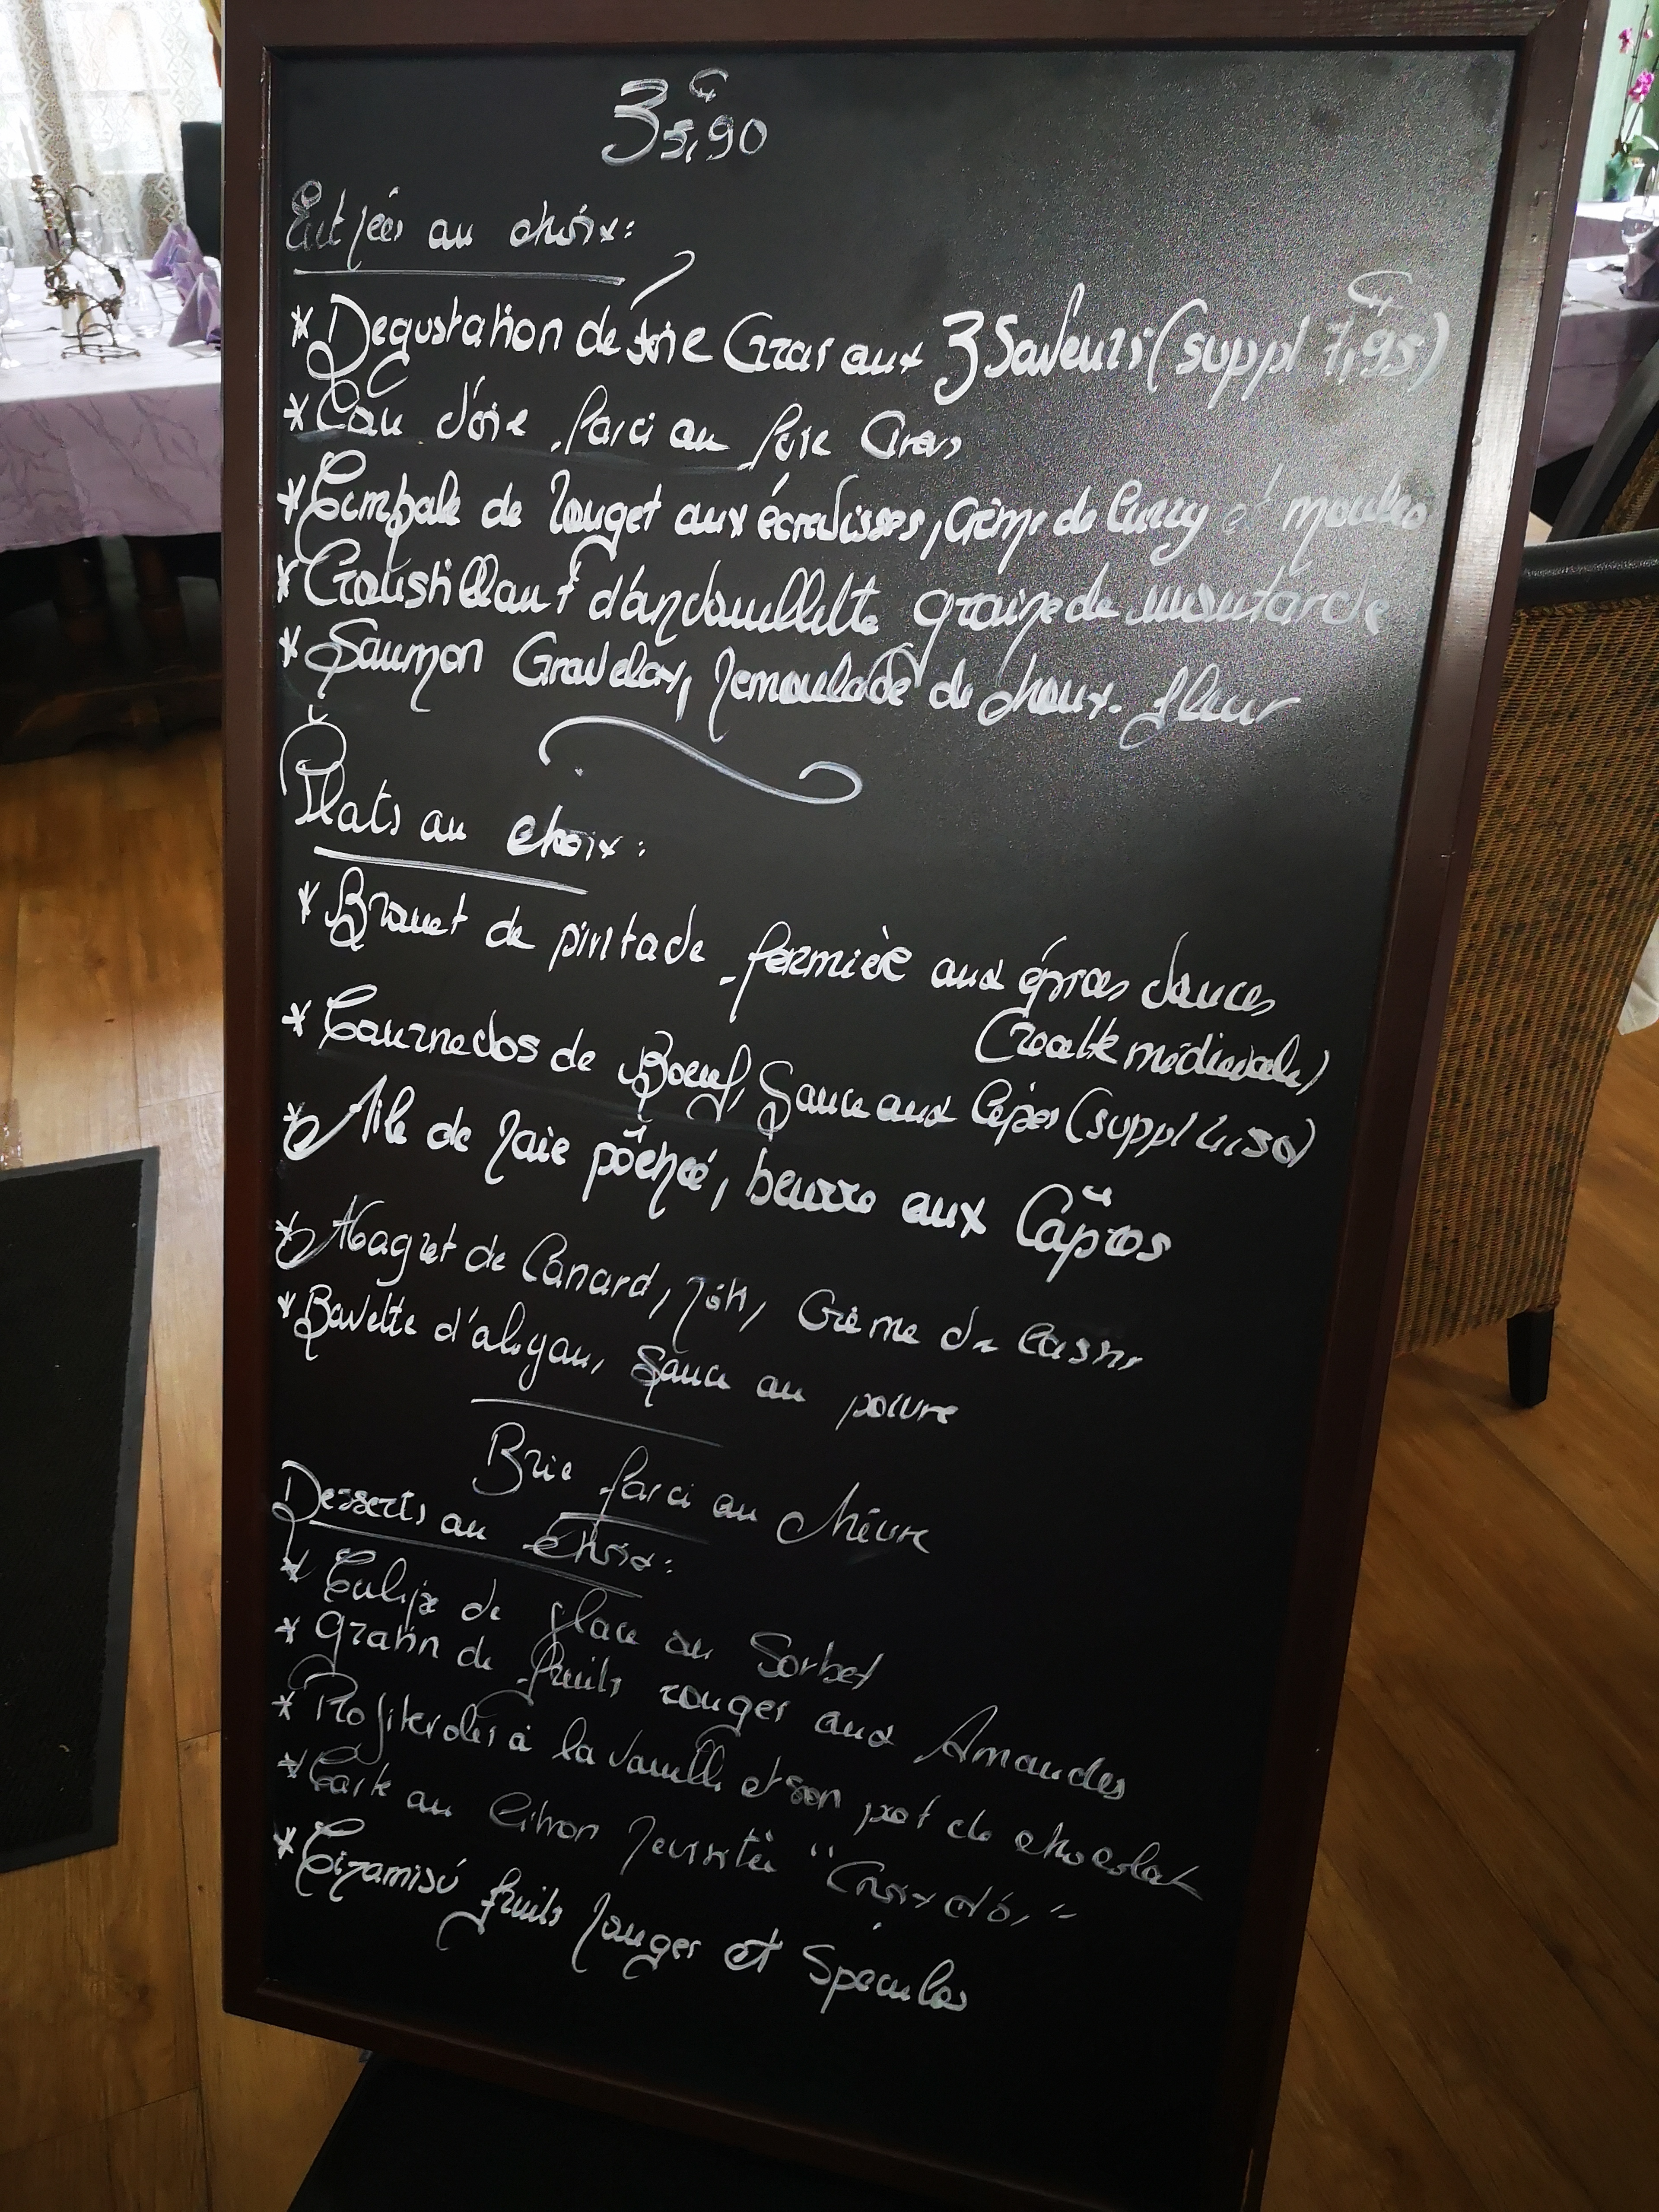 35,90 €
Entrées au choix:
* Degustation de foie Gras aux 3 Saveurs (suppl 7,95 €)
* Cou d'oie farci au foie Gras
* Timbale de rouget aux écrevisses, crème de curry et moules
* Croustillant d'andouillette graine de moutarde
* Saumon Gravelax, remoulade de choux-fleur
Plats au choix:
* Brouet de pintade fermière aux épices douces
(recette médievale)
* Tournedos de Boeuf, Sauce aux Cèpes (suppl 4,50)
* Aile de raie pôchée, beurre aux Câpres
* Magret de Canard, rôti, Crème de Cassis
* Bavette d'aloyau, Sauce au poivre
Brie farci au chèvre
Desserts au choix:
* Tulipe de glace ou Sorbet
* Gratin de fruits rouges aux Amandes
* Profiteroles à la vanille et son pot de chocolat
* Tarte au Citron revisitée "Croix d'Or"
* Tiramisú fruits rouges et Spéculos